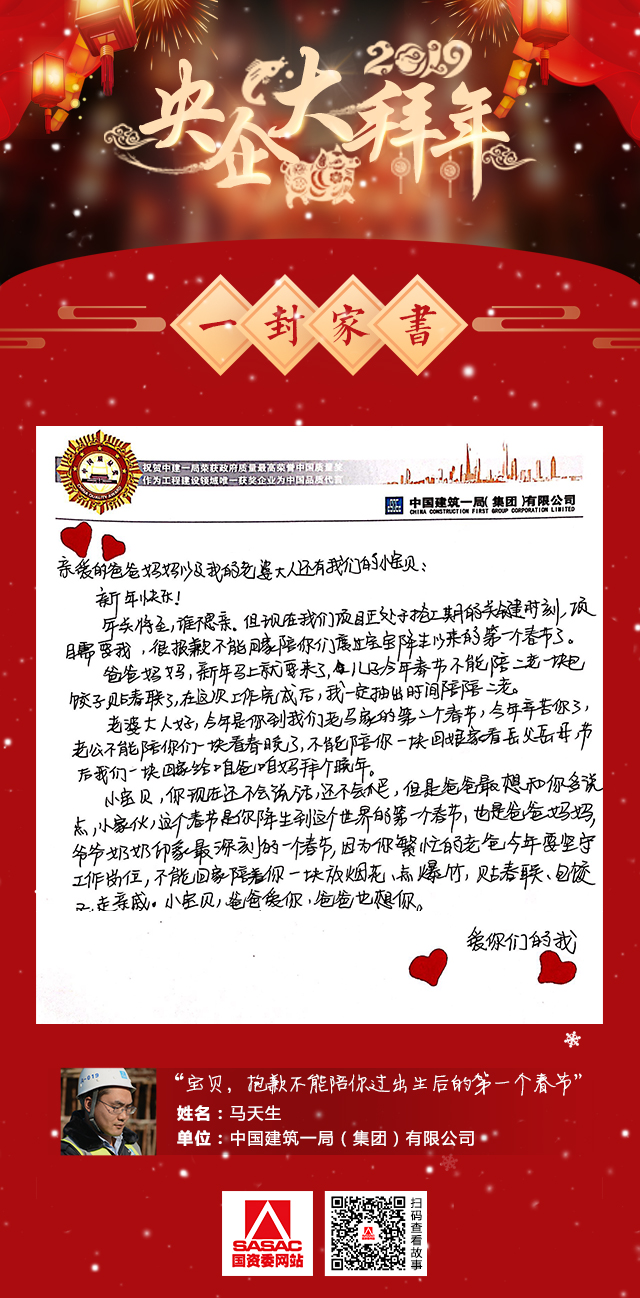 2019
央企大拜年
一封家書
祝贺中建一局荣获政府质量最高荣誉中国质量奖
作为工程建设领域唯一获奖企业为中国品质代言
中国建筑一局(集团)有限公司
CHINA CONSTRUCTION FIRST GROUP CORPORATION LIMITED
亲爱的爸爸妈妈以及我的老婆大人还有我们的小宝贝：
新年快乐！
年关将至，谁不思亲。但现在我们项目正处于抢工期的关键时刻，项
目需要我，很抱歉不能回家陪你们度过宝宝降生以来的第一个春节了。
爸爸妈妈，新年马上就要来了，儿子今年春节不能陪二老一块包
饺子贴春联了，在这次工作完成后，我一定抽出时间陪陪二老。
老婆大人好，今年是你到我们老马家的第二个春节，今年辛苦你了，
老公不能陪你们一块看春晚了，不能陪你一块回娘家看岳父岳母，节
后我们一块回家给咱爸咱妈拜个晚年。
小宝贝，你现在还不会说话，还不会爬，但是爸爸最想和你多说
点，小家伙，这个春节是你降生到这个世界的第一个春节，也是爸爸妈妈，
爷爷奶奶印象最深刻的一个春节，因为你繁忙的老爸今年要坚守
工作岗位，不能回家陪着你一块放烟花、点爆竹，贴春联、包饺
子、走亲戚。小宝贝，爸爸爱你，爸爸也想你。
爱你们的我
“宝贝，抱歉不能陪你过出生后的第一个春节”
姓名：马天生
单位：中国建筑一局（集团）有限公司
SASAC
国资委网站
扫码查看故事